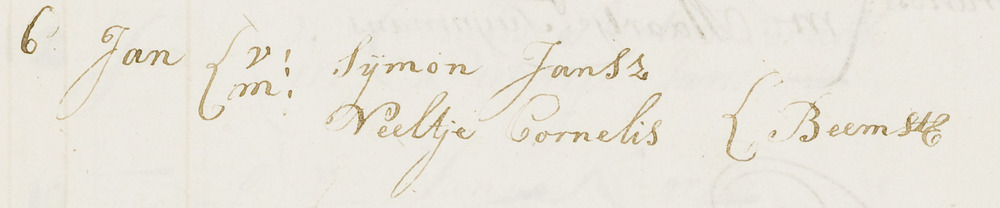 6 Jan { v: Sijmon Jansz
m: Neeltje Cornelis { Beemst